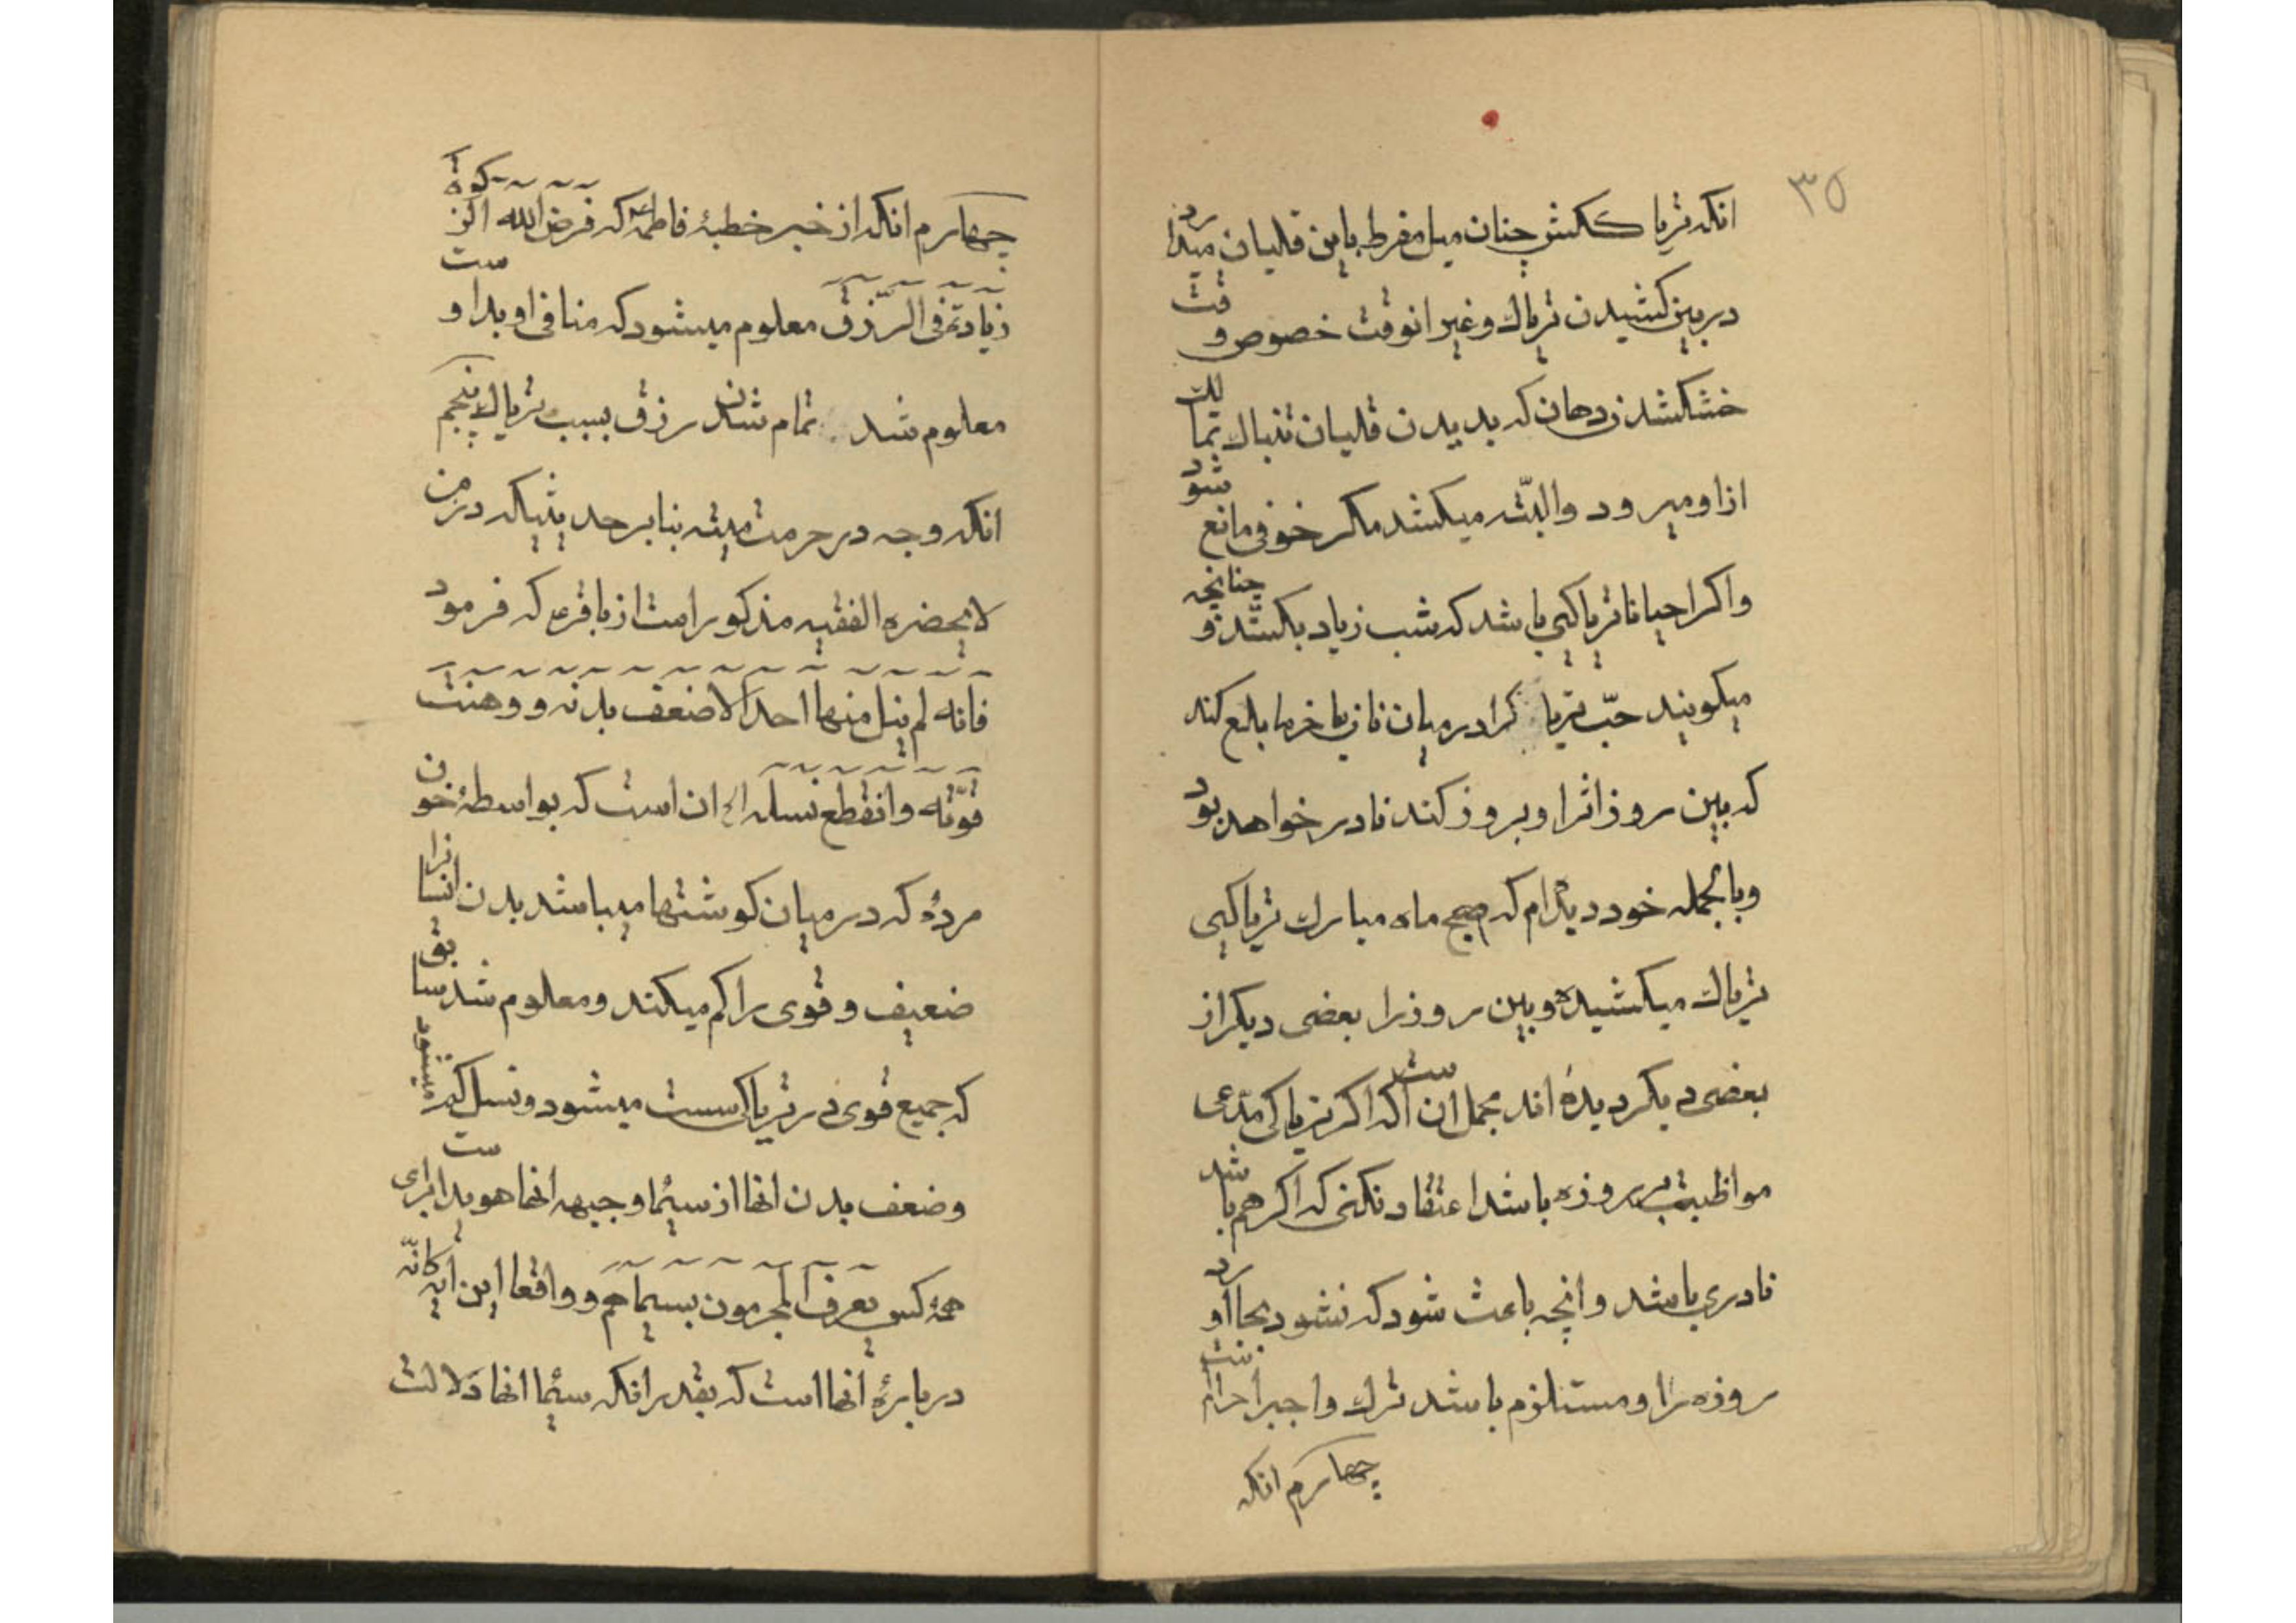 ۳۵
انکه تریاککش چنان میل مفرط باین قلیان میدارد
دربین کشیدن تریاك و غیر انوقت خصوص وقت
خشکشدن دهان که بدیدن قلیان تنباك تمالك
ازاو میرود والبته میکشد مکر خوفی مانع شود
واکر احیانا تریاکیی باشد که شب زیاد بکشد و چنانچه
میکویند حبّ تریاکرا در میان نان یا خرما بلع کند
که بین روز اثر او بروز کند نادر خواهد بود
وبالجمله خود دیدهام که صبح ماه مبارك تریاکیی
تریاك میکشیده وبین روز را بعضی دیکر از
بعضی دیکر دیدهٔ اند مجمل ان است که اکر تریاکی مدّعی
مواظبت بر روزه باشد اعتقاد نکنی که اکر هم باشد
نادری باشد وانچه باعث شود که نشود بجا اورد
روزه را و مستلزم باشد ترك واجبرا حرام
چهارم انکه
چهارم انکه از خبر خطبهٔ فاطمهع که فرض الله الزکوة
زیادة فی الرّزق معلوم میشود که منافی او بد است و
معلوم شد تمام شدن رزق بسبب تریاك پنجم
انکه وجه در حرمت میته بنابر حدیثیکه در من
لایحضره الفقیه مذکور است از باقرع که فرمود
فانه لم ینل منها احد الا ضعف بدنه و وهنت
قوّته وانقطع نسله الخ ان است که بواسطهٔ خون
مردهٔ که در میان کوشتها میباشد بدن انسانرا
ضعیف و قوی را کم میکند و معلوم شد سابق
که جمیع قوی در تریاکی سست میشود و نسل کم میشود
وضعف بدن انها از سیما و جبهه انها هویداست برای
همهٔ کس یعرف المجرمون بسیماهم و واقعا این ایه کانّه
دربارهٔ انها است که بقدر انکه سیما انها دلالت